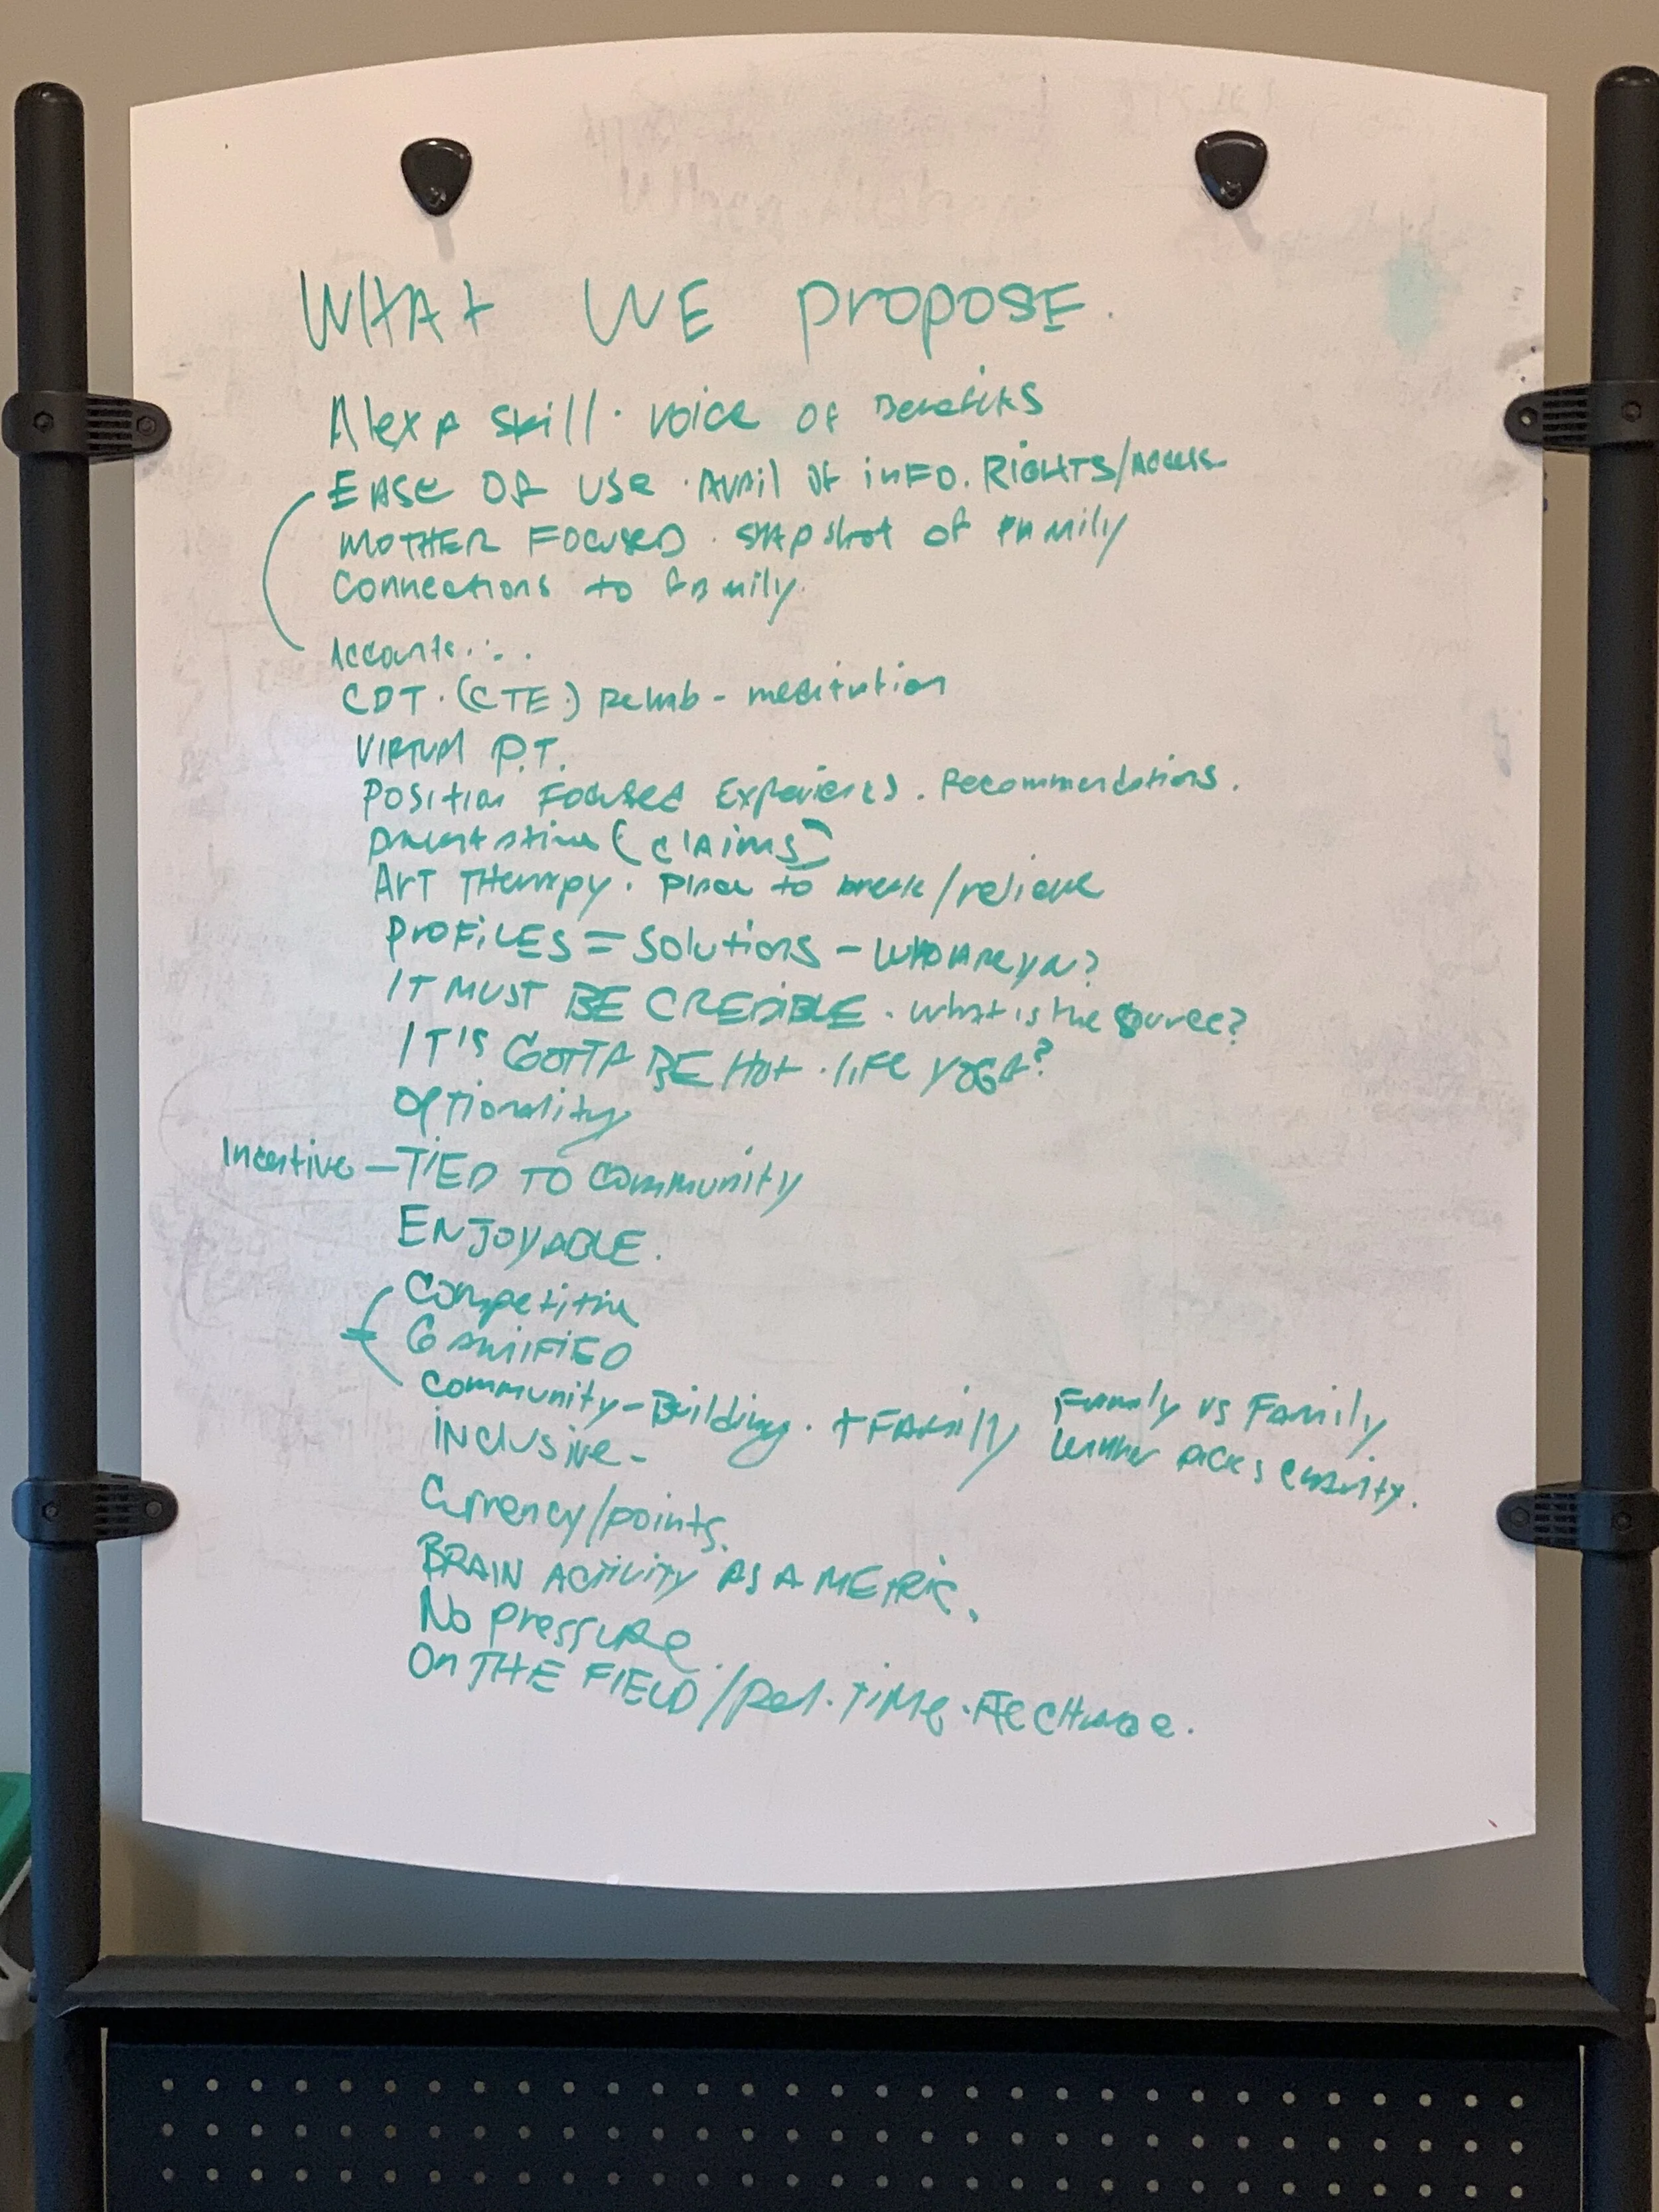 WHAT WE PROPOSE.
Alexa skill · voice of Benefits
EASE OF USE · Avail of inFO. RIGHTS/Access
MOTHER FOCUSED · snapshot of family
Connections to family.
Accounts . . .
CDT · (CTE.) Rehab - meditation
VIRTUAL P.T.
Position Focused Experiences. Recommendations.
(claims)
ART THerapy. place to break/relieve
PROFILES = Solutions - WHO ARE you?
IT MUST BE CREDIBLE. What is the source?
IT'S GOTTA BE HOT · life YOGA?
optionality
Incentive - TIED TO Community
ENJOYABLE.
Competitive
GAMIFIED
Community-Building. + FAMily Family vs Family
winner picks charity.
inclusive-
Currency/points.
BRAIN ACTIVITY AS A METRIC.
No pressure
On THE FIELD/Real.TIME.